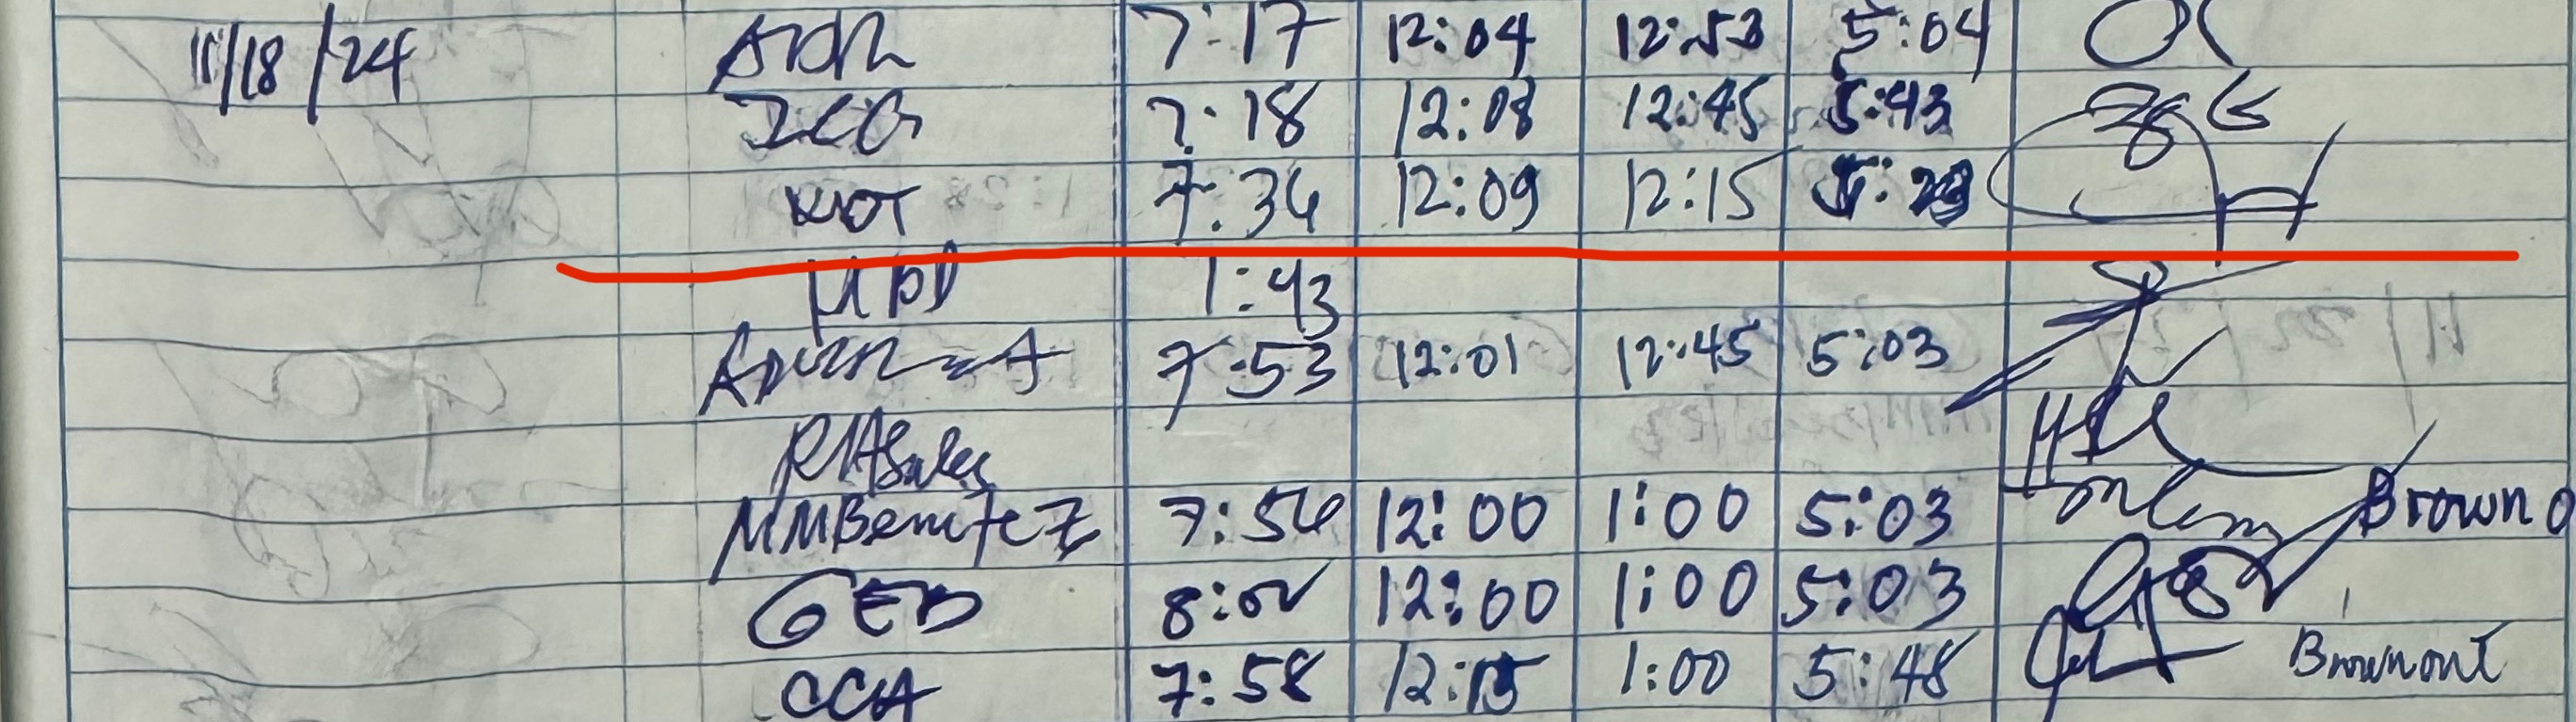 11/18/24 ADR 7:17 12:04 12:53 5:04
JCG 7:18 12:08 12:45 5:43
KDT 7:36 12:09 12:15
MDD 1:43
7:53 12:01 12:45 5:03
RMSales
MMBenitez 7:56 12:00 1:00 5:03 Brown O
GEB 8:00 12:00 1:00 5:03
CCA 7:58 12:15 1:00 5:48 Brownout